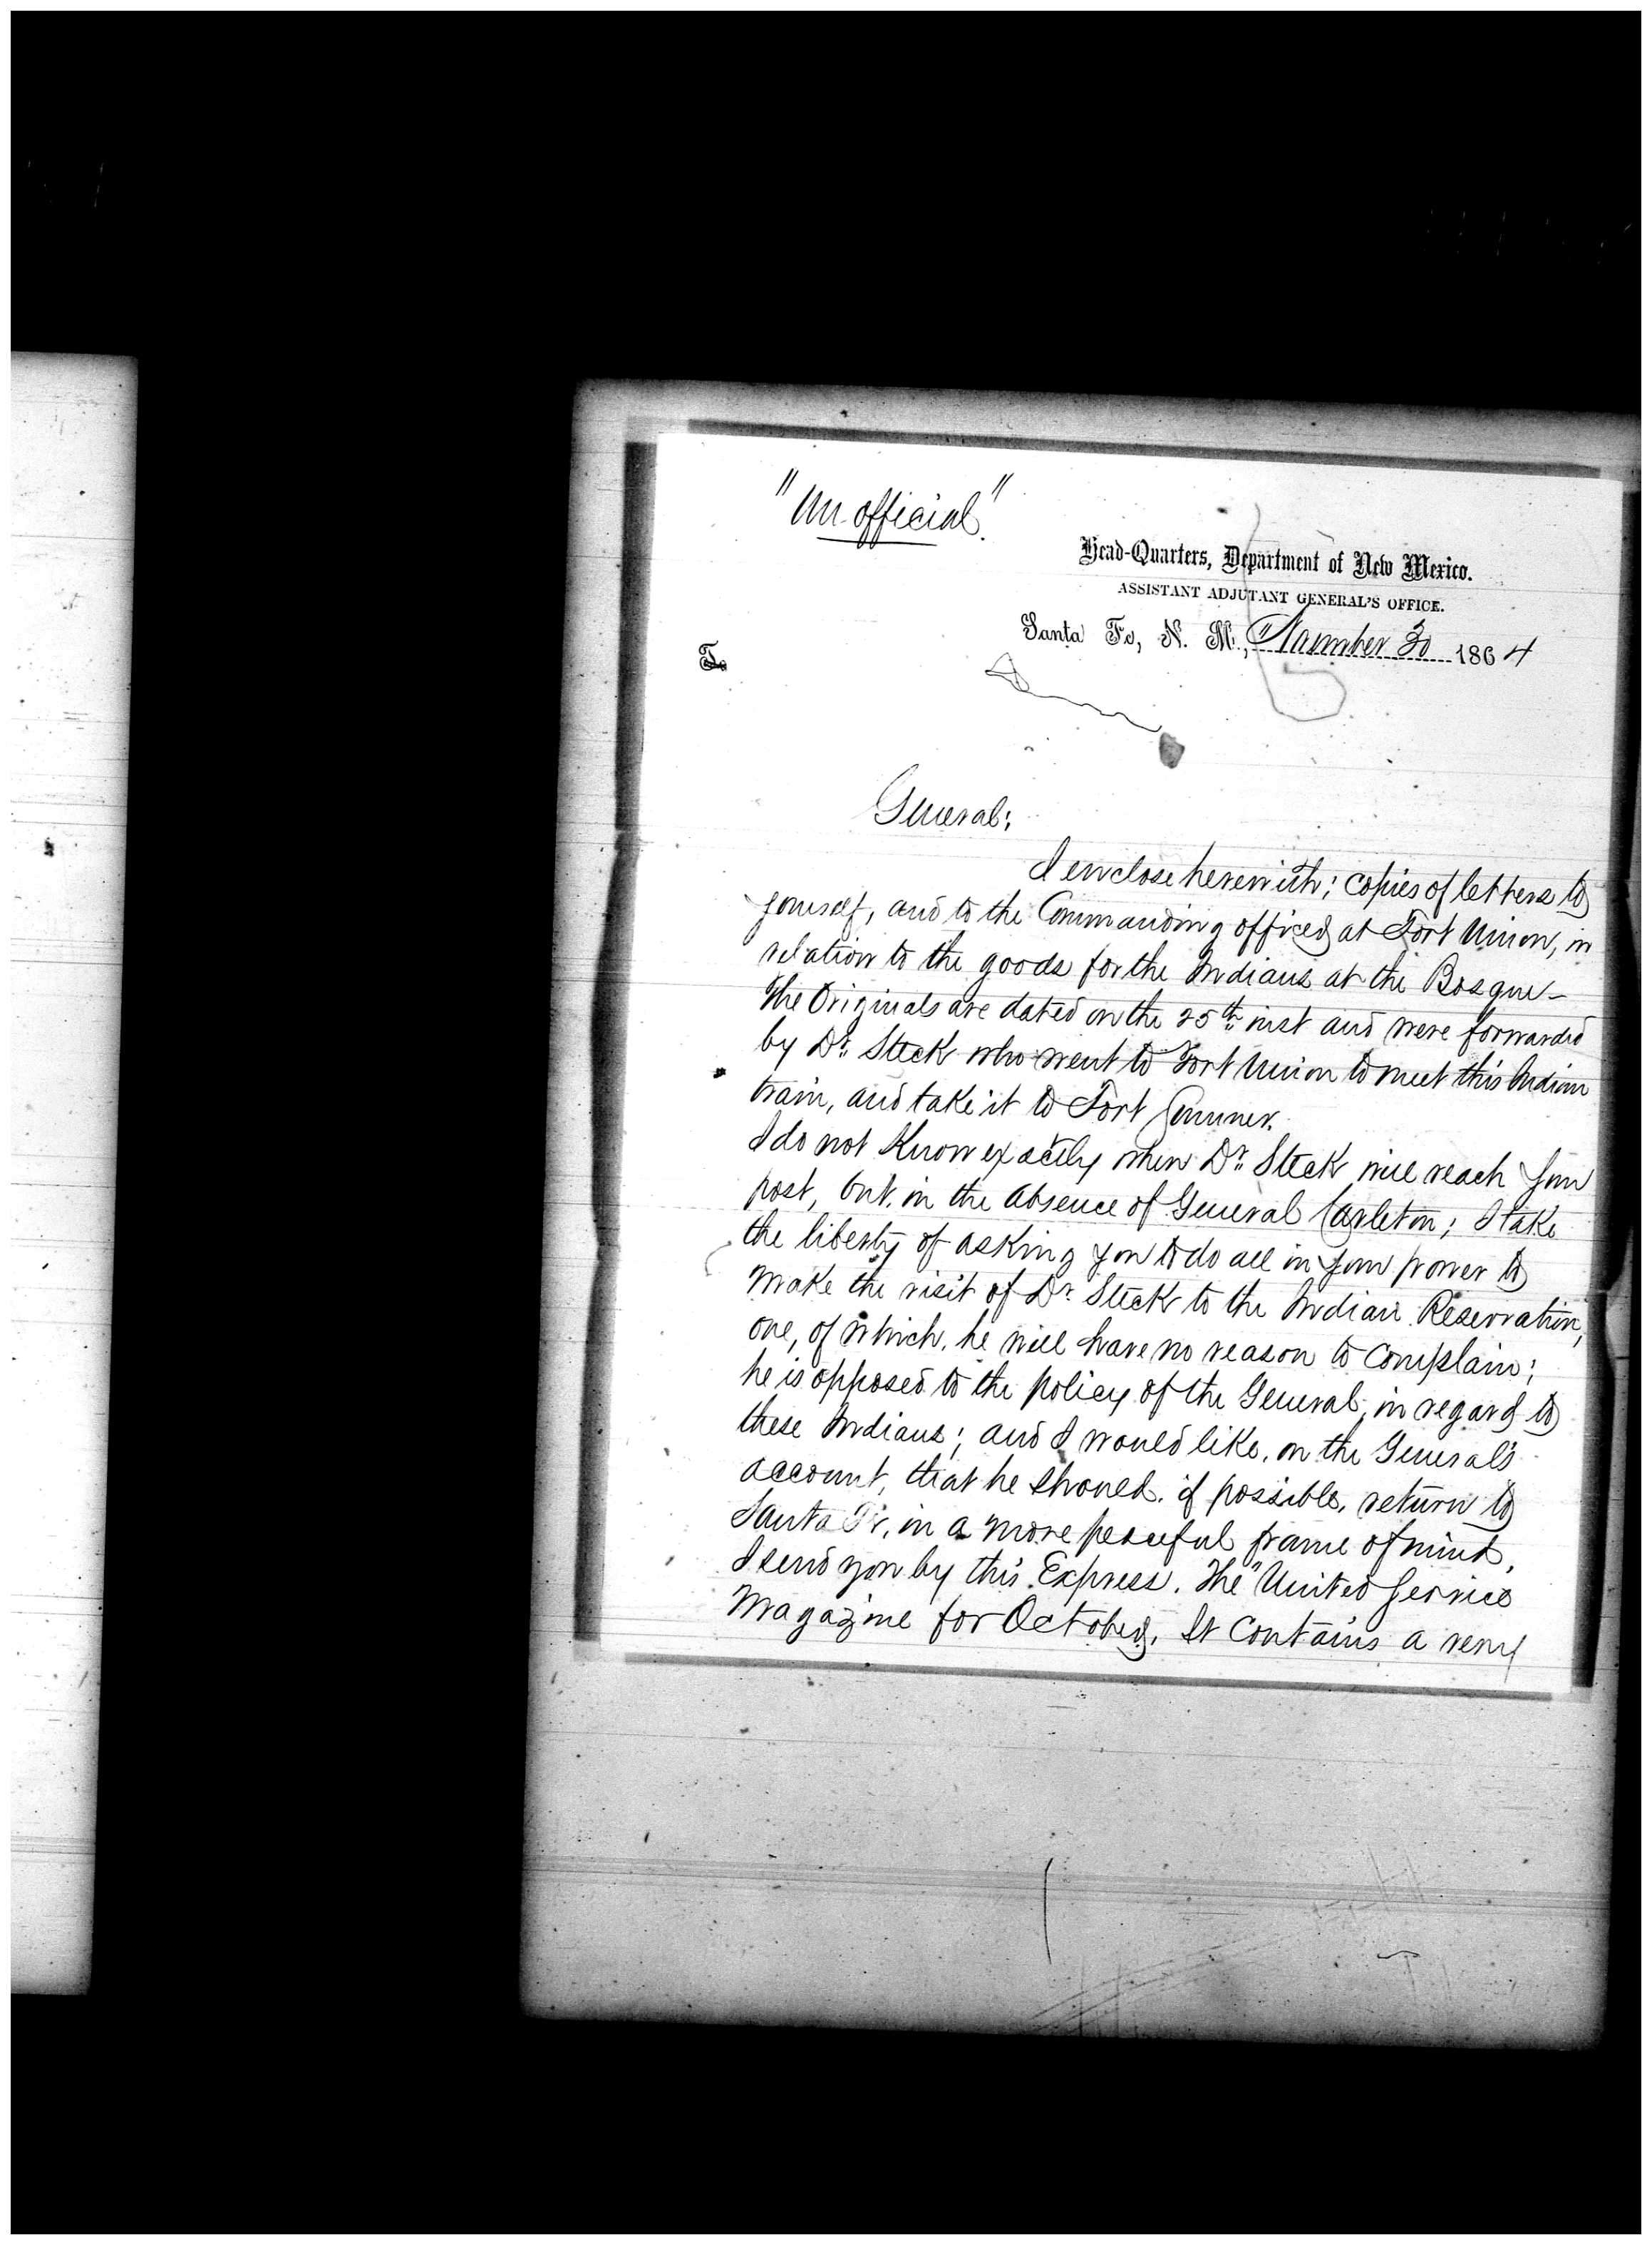 "Un-official".
Head-Quarters, Department of New Mexico.
ASSISTANT ADJUTANT GENERAL'S OFFICE.
Santa Fe, N. M., November 30 1864
General;
I enclose herewith; copies of letters to
yourself, and to the Commanding officer at Fort Union, in
relation to the goods for the Indians at the Bosque—
The Originals are dated on the 25th inst and were forwarded
by Dr. Steck who went to Fort Union to meet this Indian
train, and take it to Fort Sumner.
I do not Know exactly when Dr. Steck will reach your
post, but, in the absence of General Carleton; I take
the liberty of asking you to do all in your power to
make the visit of Dr. Steck to the Indian Reservation,
one, of which, he will have no reason to Complain;
he is opposed to the policy of the General, in regard to
these Indians; and I would like, on the General's
account, that he should, if possible, return to
Santa Fe, in a more peaceful frame of mind.
I send you by this Express. The "United Service
Magazine for October. It Contains a very